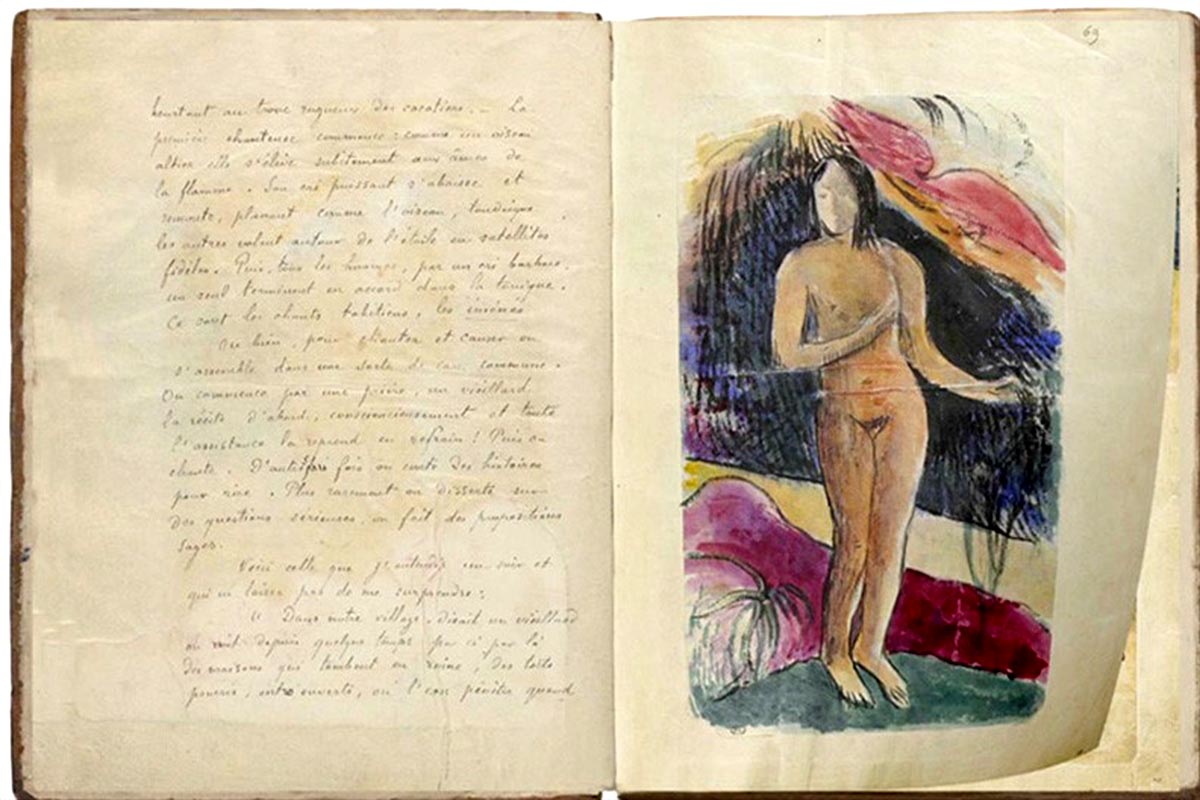 heurtant au tronc rugueux des cocotiers. — La
première chanteuse commence : comme un oiseau
altier elle s'élève subitement aux âmes de
la flamme. Son cri puissant s'abaisse et
remonte, planant comme l'oiseau, tandis que
les autres volent autour de l'étoile en satellites
fidèles. Puis, tous les hommes, par un cri barbare,
un seul terminent en accord dans la tonique.
Ce sont les chants tahitiens, les iménés
Ou bien, pour chanter et causer on
s'assemble dans une sorte de case commune.
On commence par une prière, un vieillard
la récite d'abord, consciencieusement et toute
l'assistance la reprend en refrain ! Puis on
chante. D'autres fois on conte des histoires
pour rire. Plus rarement on disserte sur
des questions sérieuses, on fait des propositions
sages.
Voici celle que j'entendis un soir et
qui ne laisse pas de me surprendre :
" Dans notre village, disait un vieillard
on voit depuis quelque temps par ci par là
des maisons qui tombent en ruine, des toits
pourris, entr'ouverts, où l'eau pénètre quand
69